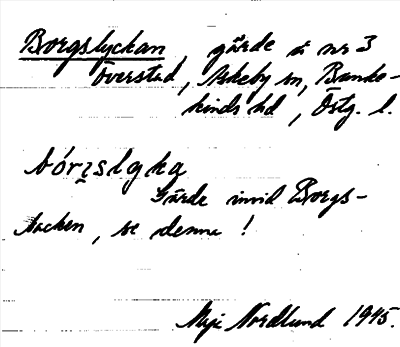 Borgslyckan, gärde å nr 3
Överstad, Askeby sn, Banke-
kinds hd, Östg. l.
bórɪslyka
Gärde invid Borgs-
backen, se denna!
Maja Nordlund 1945.